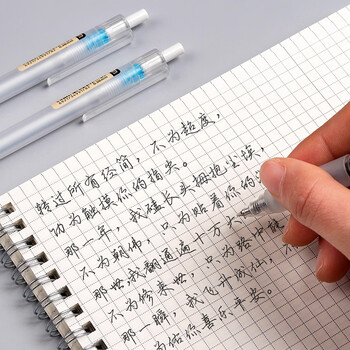 转过所有经筒，不为超度，
仿为触摸你的指尖。
那一年，我磕长头拥抱尘埃，
不为朝佛，只为贴着你的
那一世，我翻遍十万大
不为修来世，只为路中能
那一瞬，我飞升成仙，不
为佑你喜乐平安。